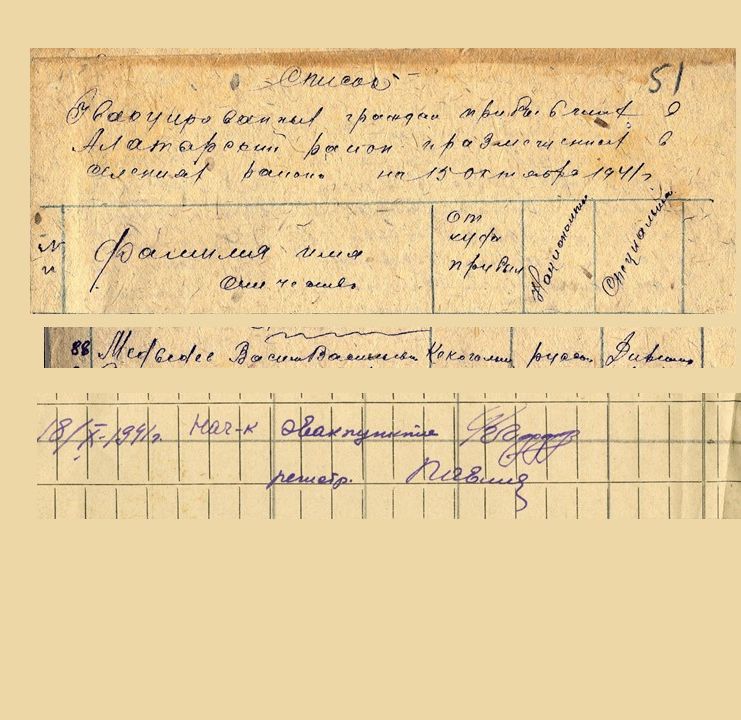 Список
51
Эвакуированных граждан прибывших в
Алатырский район и размещенных в
селениях района на 15 октября 1941 г
№
Фамилия имя
Отчество
От
куда
прибыл
Национальн
Специальн
88 Медведев Васили Васильевич русск
18/X-1941г. Нач-к эвакпункта
регистр.